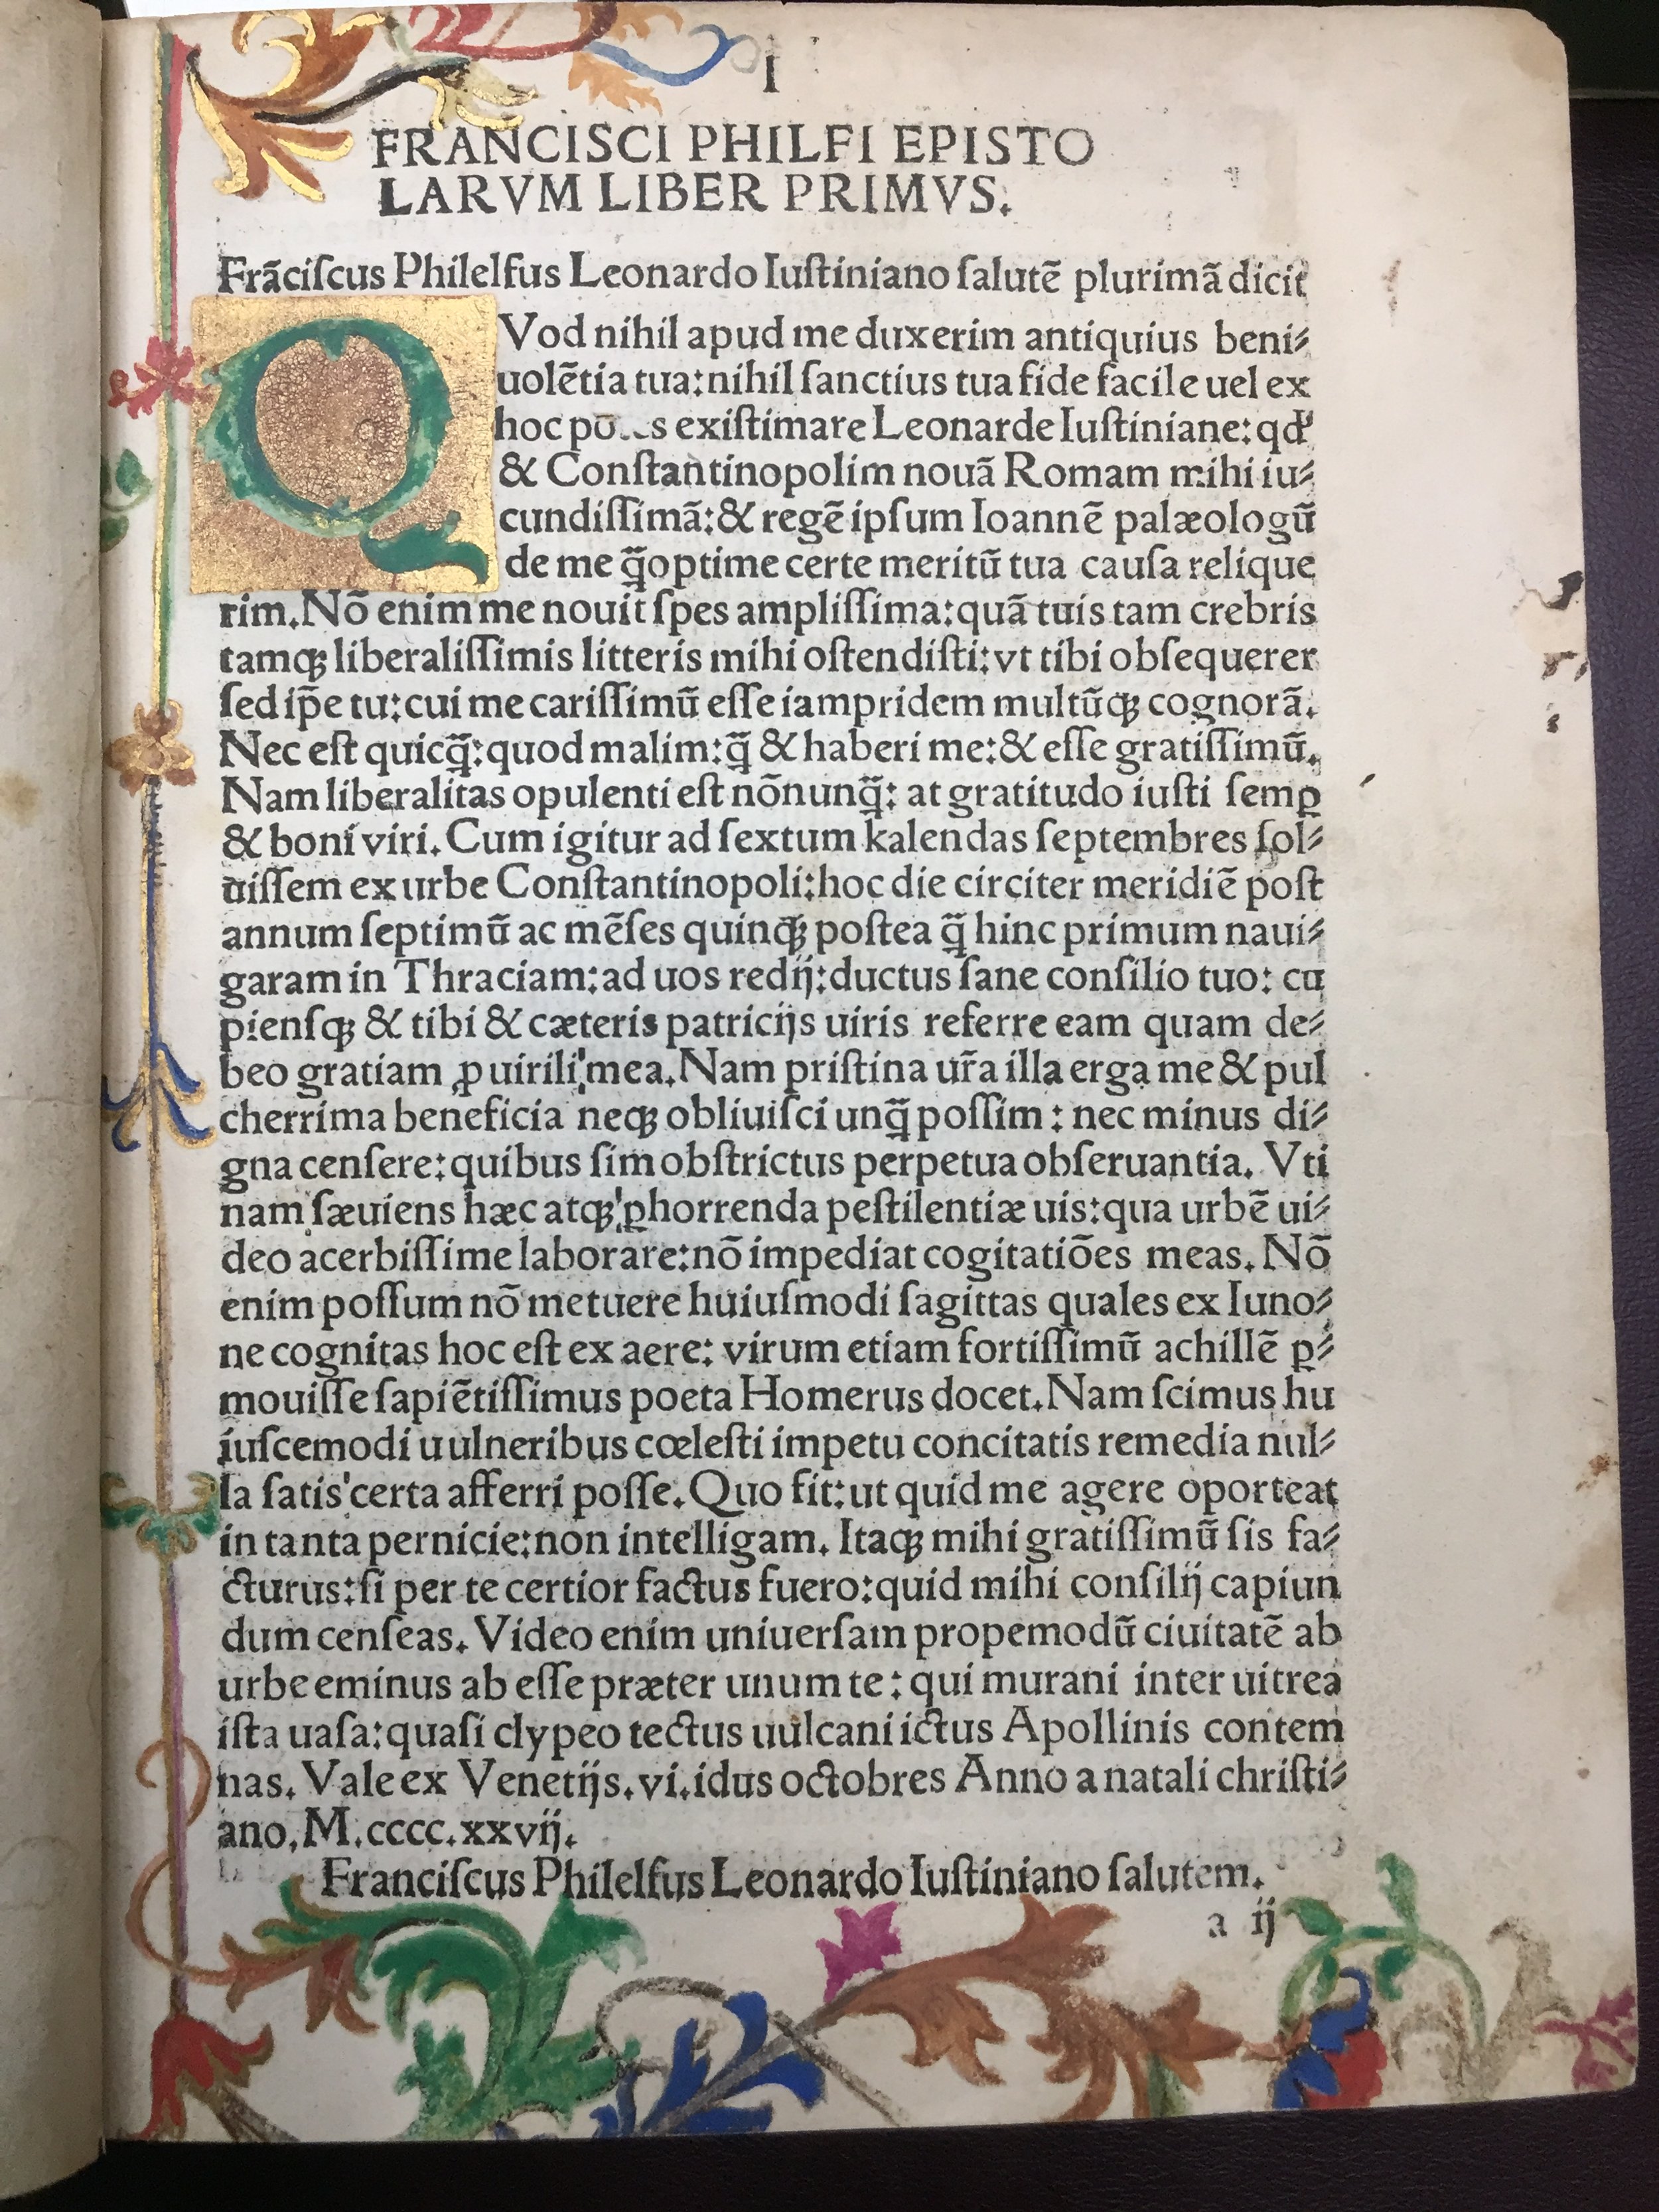 I
FRANCISCI PHILFI EPISTO
LARVM LIBER PRIMVS.
Frãciſcus Philelfus Leonardo Iuſtiniano ſalutẽ plurimã dicit
QVod nihil apud me duxerim antiquius beni⸗
uolẽtia tua:nihil ſanctius tua fide facile uel ex
hoc exiſtimare Leonarde Iuſtiniane: qđ
& Conſtantinopolim nouã Romam mihi iu⸗
cundiſſimã:& regẽ ipſum Ioannẽ palæologũ
de me q̃ optime certe meritũ tua cauſa relique
rim.Nõ enim me nouit ſpes ampliſſima:quã tuis tam crebris
tamqꝫ liberaliſſimis litteris mihi oſtendiſti:vt tibi obſequerer
ſed ip̃e tu:cui me cariſſimũ eſſe iampridem multũqꝫ cognorã.
Nec eſt quicq̃:quod malim:q̃ & haberi me:& eſſe gratiſſimũ.
Nam liberalitas opulenti eſt nõnunq̃: at gratitudo iuſti ſemꝑ
& boni viri. Cum igitur ad ſextum kalendas ſeptembres ſol⸗
uiſſem ex urbe Conſtantinopoli:hoc die circiter meridiẽ poſt
annum ſeptimũ ac mẽſes quinqꝫ poſtea q̃ hinc primum naui⸗
garam in Thraciam:ad uos redij:ductus ſane conſilio tuo: cu
pienſqꝫ & tibi & cæteris patricijs uiris referre eam quam de⸗
beo gratiam ꝓ uirili mea.Nam priſtina ur̃a illa erga me & pul
cherrima beneficia neqꝫ obliuiſci unq̃ poſſim : nec minus di⸗
gna cenſere:quibus ſim obſtrictus perpetua obſeruantia. Vti
nam ſæuiens hæc atqꝫ ꝑhorrenda peſtilentiæ uis:qua urbẽ ui⸗
deo acerbiſſime laborare:nõ impediat cogitatiões meas. Nõ
enim poſſum nõ metuere huiuſmodi ſagittas quales ex Iuno⸗
ne cognitas hoc eſt ex aere: virum etiam fortiſſimũ achillẽ ꝑ⸗
mouiſſe ſapiẽtiſſimus poeta Homerus docet.Nam ſcimus hu
iuſcemodi uulneribus cœleſti impetu concitatis remedia nul⸗
la ſatis certa afferri poſſe.Quo fit:ut quid me agere oporteat
in tanta pernicie:non intelligam. Itaqꝫ mihi gratiſſimũ ſis fa⸗
cturus:ſi per te certior factus fuero:quid mihi conſilij capiun
dum cenſeas. Video enim uniuerſam propemodũ ciuitatẽ ab
urbe eminus ab eſſe præter unum te : qui murani inter uitrea
iſta uaſa:quaſi clypeo tectus uulcani ictus Apollinis contem
nas. Vale ex Venetijs.vi.idus octobres Anno a natali chriſti⸗
ano.M.cccc.xxvij.
Franciſcus Philelfus Leonardo Iuſtiniano ſalutem.
a ij